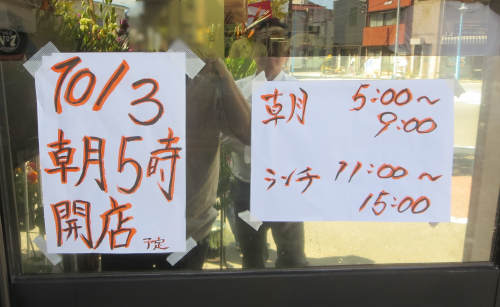 10/3
朝5時
開店
予定
朝 5:00〜
9:00
ランチ 11:00〜
15:00